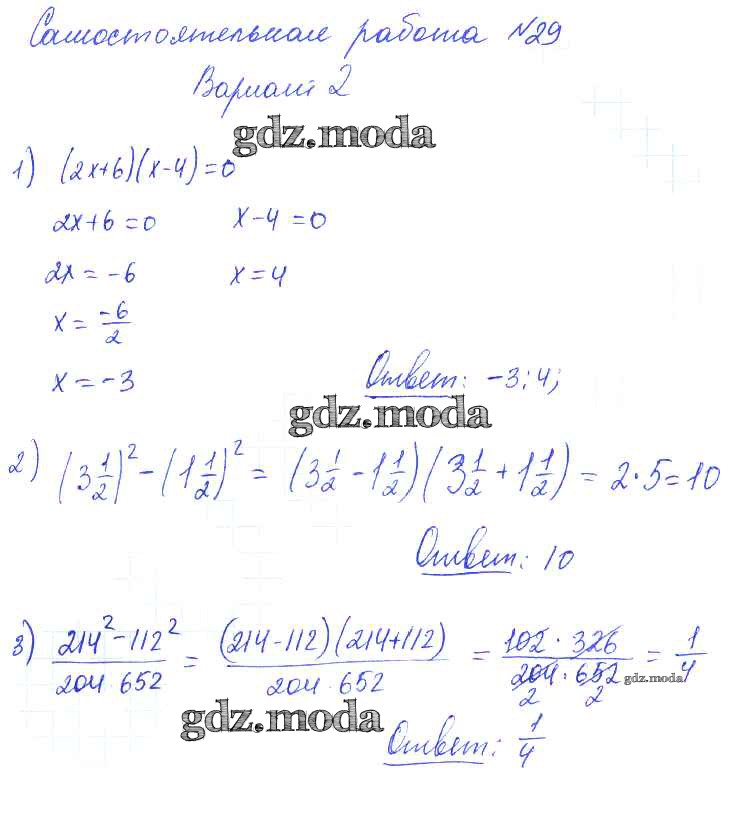 Самостоятельная работа №29
Вариант 2
gdz.moda
1) (2x+6)(x-4)=0
2x+6=0 x-4=0
2x=-6 x=4
x=-6/2
x=-3 Ответ: -3; 4;
gdz.moda
2) (3 1/2)² - (1 1/2)² = (3 1/2 - 1 1/2)(3 1/2 + 1 1/2) = 2·5=10
Ответ: 10
3) 214²-112²/204·652 = (214-112)(214+112)/204·652 = 102·326/204·652 = 1/4
2 2
gdz.moda
gdz.moda
Ответ: 1/4